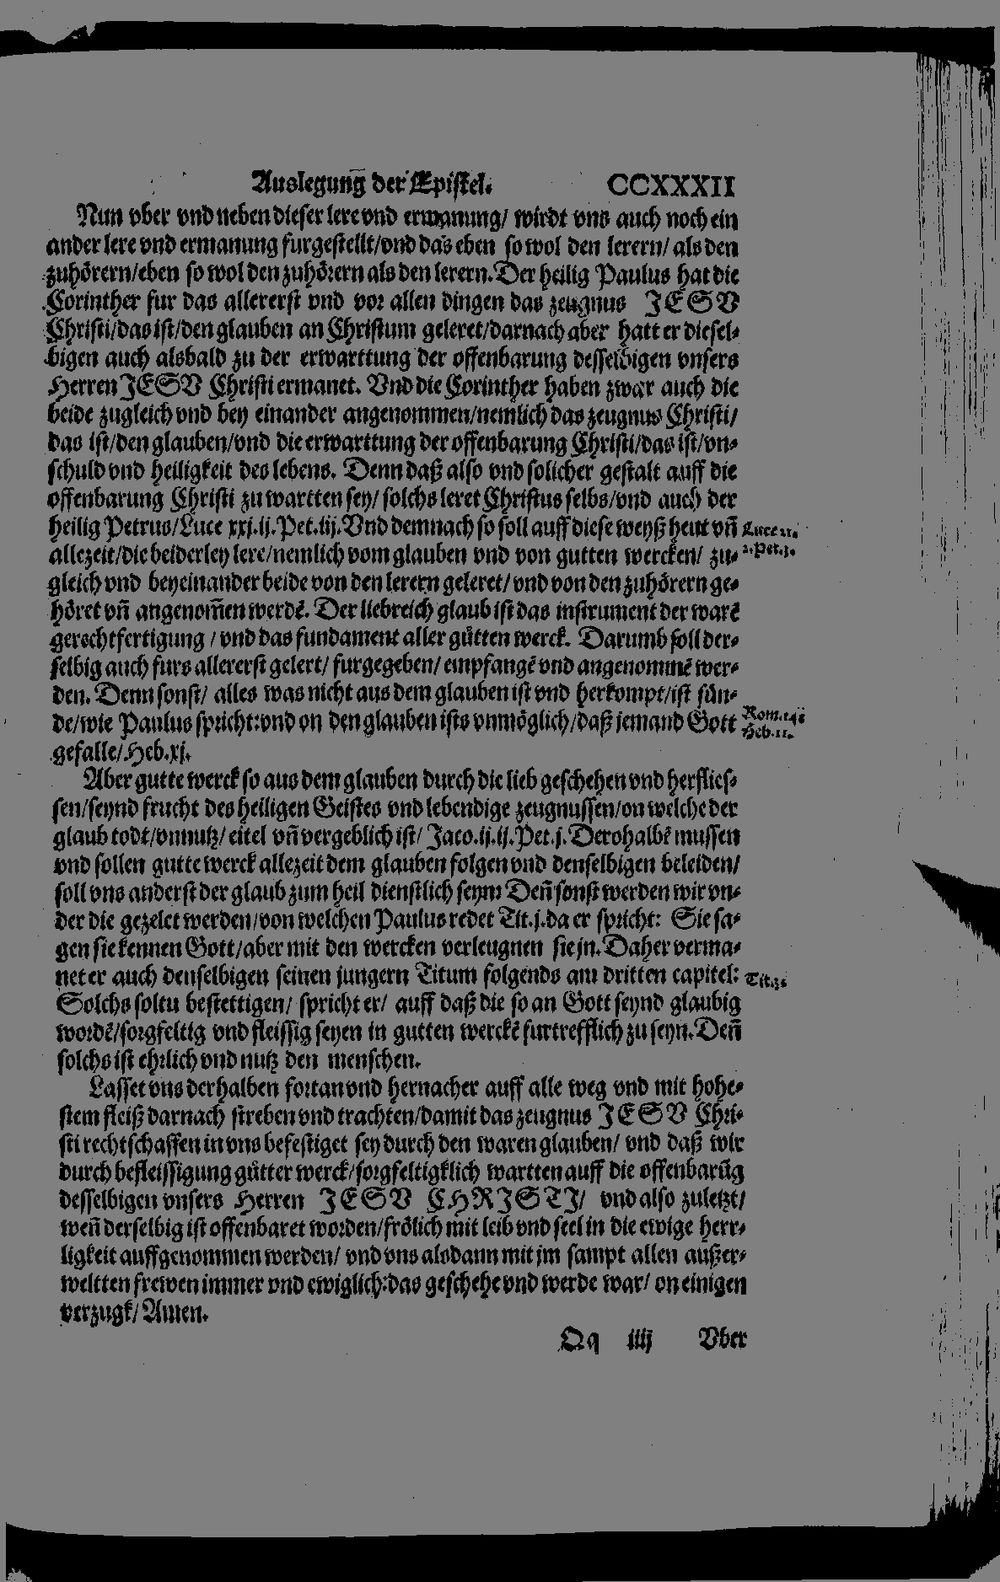 Auslegung der Epistel. CCXXXII
Nun vber vnd neben dieser lere vnd ermanung/ wirdt vns auch noch ein
ander lere vnd ermanung furgestellt/vnd das eben so wol den lerern/ als den
zuhörern/eben so wol den zuhörern als den lerern. Der heilig Paulus hat die
Corinther fur das allererst vnd vor allen dingen das zeugnus JESV
Christi/das ist/den glauben an Christum geleret/darnach aber hatt er diesel-
bigen auch alsbald zu der erwarttung der offenbarung desselbigen vnsers
Herren JESV Christi ermanet. Vnd die Corinther haben zwar auch die
beide zugleich vnd bey einander angenommen/nemlich das zeugnus Christi/
das ist/den glauben/vnd die erwarttung der offenbarung Christi/das ist/vn-
schuld vnd heiligkeit des lebens. Denn daß also vnd solicher gestalt auff die
offenbarung Christi zu wartten sey/ solchs leret Christus selbs/vnd auch der
heilig Petrus/Luce xxj.ij.Pet.iij.Vnd demnach so soll auff diese weyß heut vn̄
Luce 21.
allezeit/die beiderley lere/nemlich vom glauben vnd von gutten wercken/ zu-
2.Pet.3.
gleich vnd beyeinander beide von den lerern geleret/ vnd von den zuhörern ge-
höret vn̄ angenom̄en werdē. Der liebreich glaub ist das instrument der warē
gerechtfertigung / vnd das fundament aller gütten werck. Darumb soll der-
selbig auch furs allererst gelert/ furgegeben/ empfangē vnd angenommē wer-
den. Denn sonst/ alles was nicht aus dem glauben ist vnd herkompt/ist sün-
de/wie Paulus spricht:vnd on den glauben ists vnmöglich/daß jemand Gott
Rom.14
Heb.11.
gefalle/Heb.xj.
Aber gutte werck so aus dem glauben durch die lieb geschehen vnd herflies-
sen/seynd frucht des heiligen Geistes vnd lebendige zeugnussen/on welche der
glaub todt/vnnutz/ eitel vn̄ vergeblich ist/ Jaco.ij.ij.Pet.j. Derohalbē mussen
vnd sollen gutte werck allezeit dem glauben folgen vnd denselbigen beleiden/
soll vns anderst der glaub zum heil dienstlich seyn Den̄ sonst werden wir vn-
der die gezelet werden/von welchen Paulus redet Tit.j.da er spricht: Sie sa-
gen sie kennen Gott/aber mit den wercken verleugnen sie jn. Daher verma-
net er auch denselbigen seinen jungern Titum folgends am dritten capitel:
Tit.3.
Solchs soltu bestettigen/ spricht er/ auff daß die so an Gott seynd glaubig
wordē/sorgfeltig vnd fleissig seyen in gutten werckē furtrefflich zu seyn. Den̄
solchs ist ehrlich vnd nutz den menschen.
Lasset vns derhalben fortan vnd hernacher auff alle weg vnd mit hohe-
stem fleiß darnach streben vnd trachten/damit das zeugnus JESV Chri-
sti rechtschaffen in vns befestiget sey durch den waren glauben/ vnd daß wir
durch befleissigung gütter werck/sorgfeltigklich wartten auff die offenbarūg
desselbigen vnsers Herren JESV CHRISTI/ vnd also zuletzt/
wen̄ derselbig ist offenbaret worden/frölich mit leib vnd seel in die ewige herr-
ligkeit auffgenommen werden/ vnd vns alsdann mit jm sampt allen außer-
weltten frewen immer vnd ewiglich:das geschehe vnd werde war/ on einigen
verzugk/ Amen.
Qq iiij Vber